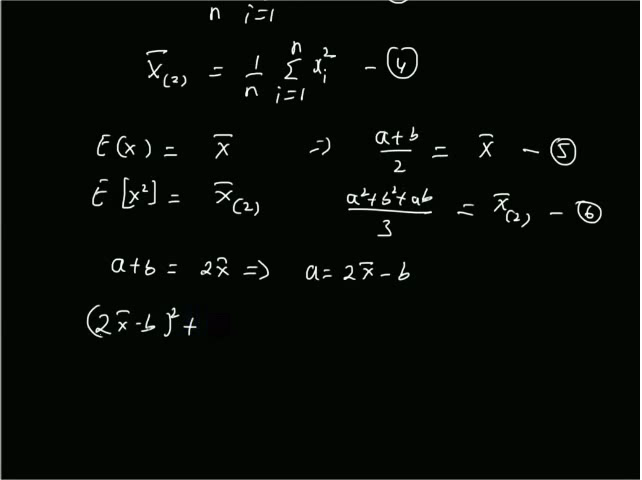 n i=1
x̄(2) = 1/n Σ_{i=1}^{n} x_i^2 - ④
E(x) = x̄ => (a+b)/2 = x̄ - ⑤
E[x²] = x̄(2) (a²+b²+ab)/3 = x̄(2) - ⑥
a+b = 2x̄ => a = 2x̄ - b
(2x̄-b)² +